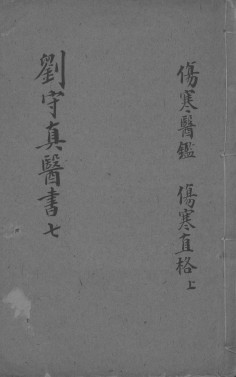 傷寒醫鑑 傷寒直格上
劉守真醫書七